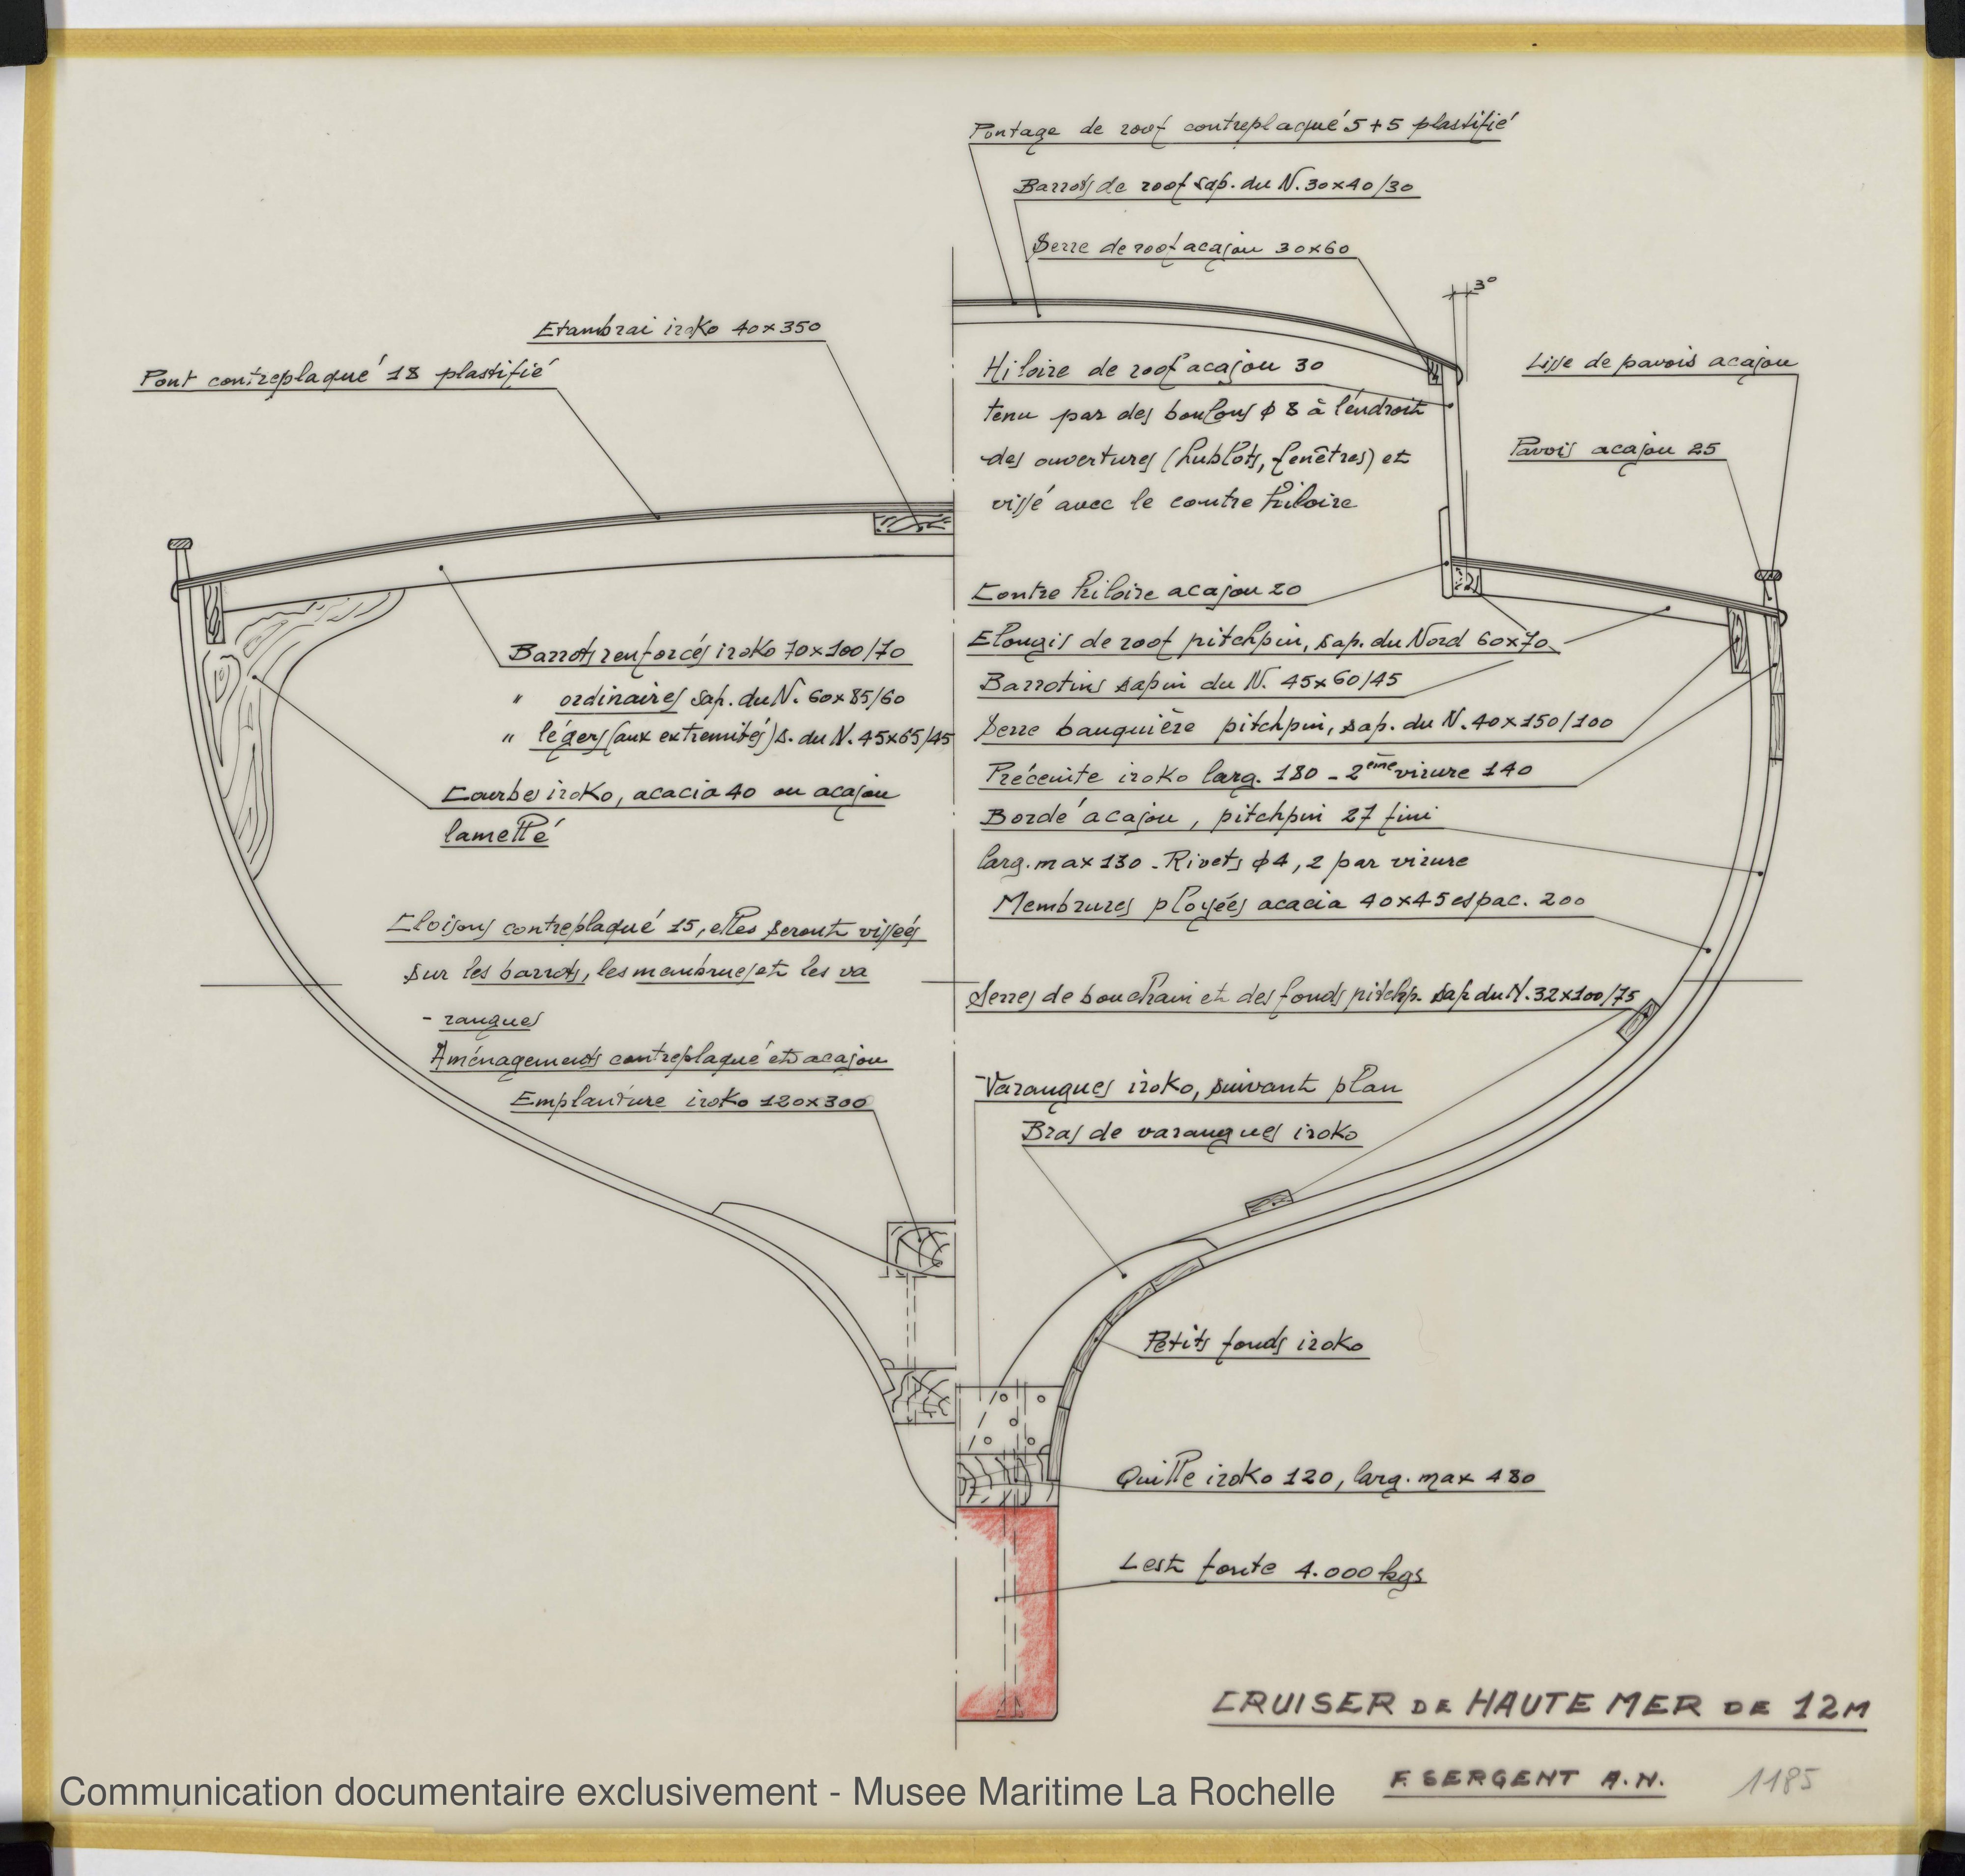 Pontage de roof contreplaqué 5+5 plastifié
Barrots de roof sap. du N. 30x40/30
Serre de roof acajou 30x60
3°
Etambrai iroko 40x350
Pont contreplaqué 18 plastifié
Hiloire de roof acajou 30
tenu par des boulons φ 8 à l'endroit
des ouvertures (hublots, fenêtres) et
vissé avec le contre hiloire
Lisse de pavois acajou
Pavois acajou 25
Contre hiloire acajou 20
Elongis de roof pitchpin, sap. du Nord 60x70
Barrotins sapin du N. 45x60/45
Serre bauquière pitchpin, sap. du N. 40x150/100
Préceinte iroko larg. 180 - 2ème virure 140
Bordé acajou, pitchpin 27 fini
larg. max 130 - Rivets φ 4, 2 par virure
Membrures ployées acacia 40x45 espac. 200
Serres de bouchain et des fonds pitchp. sap du N. 32x100/75
Barrots renforcés iroko 70x100/70
" ordinaires sap. du N. 60x85/60
" légers (aux extremités) s. du N. 45x65/45
Courbes iroko, acacia 40 ou acajou
lamellé
Cloisons contreplaqué 15, elles seront vissées
sur les barrots, les membrures et les va
- rangues
Aménagements contreplaqué et acajou
Emplanture iroko 120x300
Varangues iroko, suivant plan
Bras de varangues iroko
Petits fonds iroko
Quille iroko 120, larg. max 480
Lest fonte 4.000 kgs
CRUISER DE HAUTE MER DE 12M
F. SERGENT A.N.
1185
Communication documentaire exclusivement - Musee Maritime La Rochelle